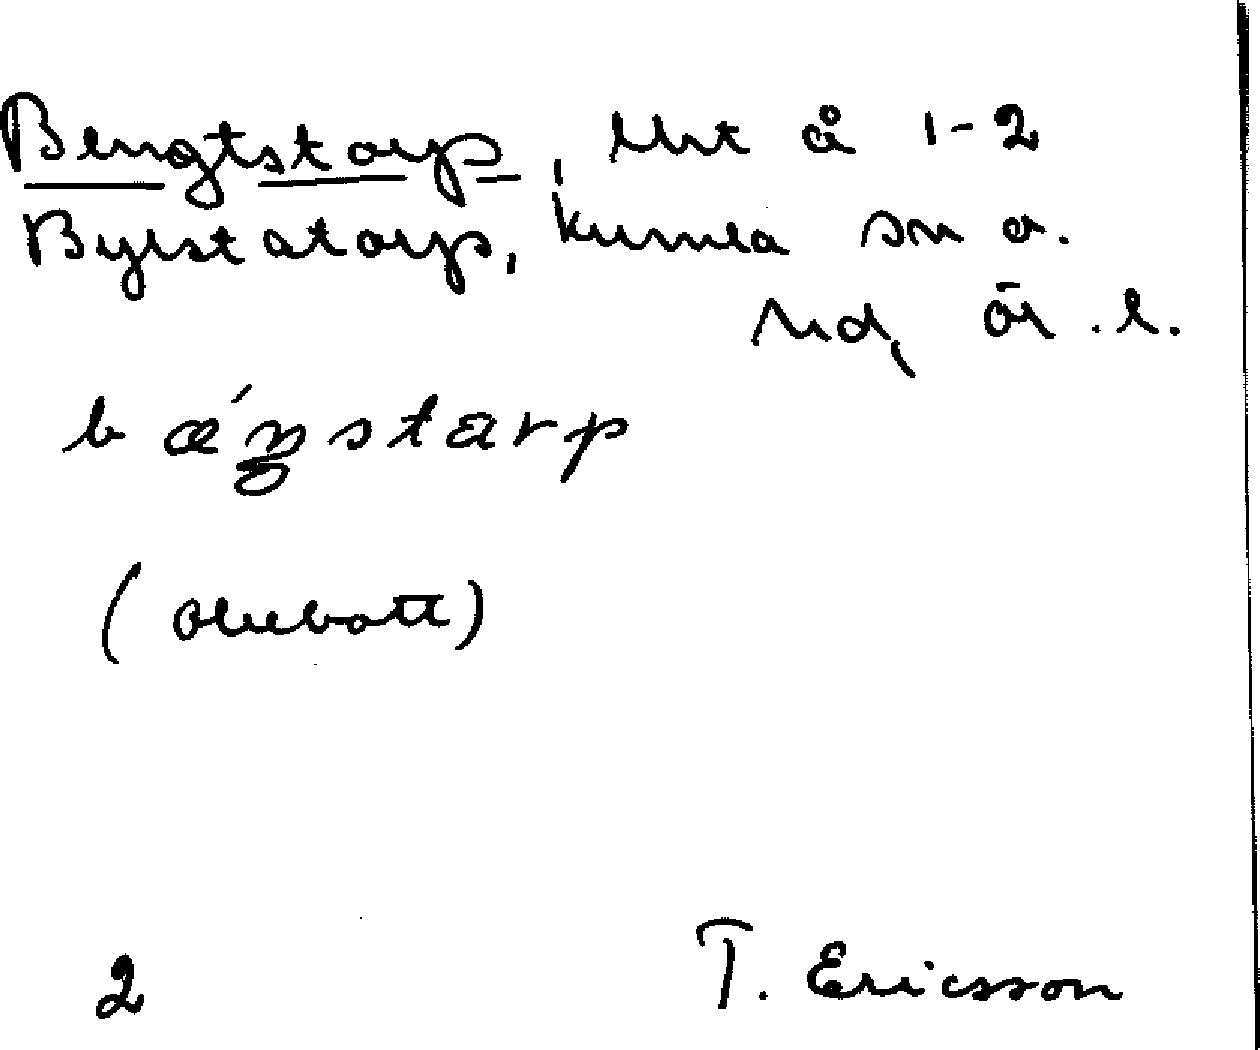 Bengtstorp, lht å 1-2
Byrstatorp, Kumla sn o.
hd, Ör. l.
bǽŋstarp
(obebott)
2 T. Ericsson